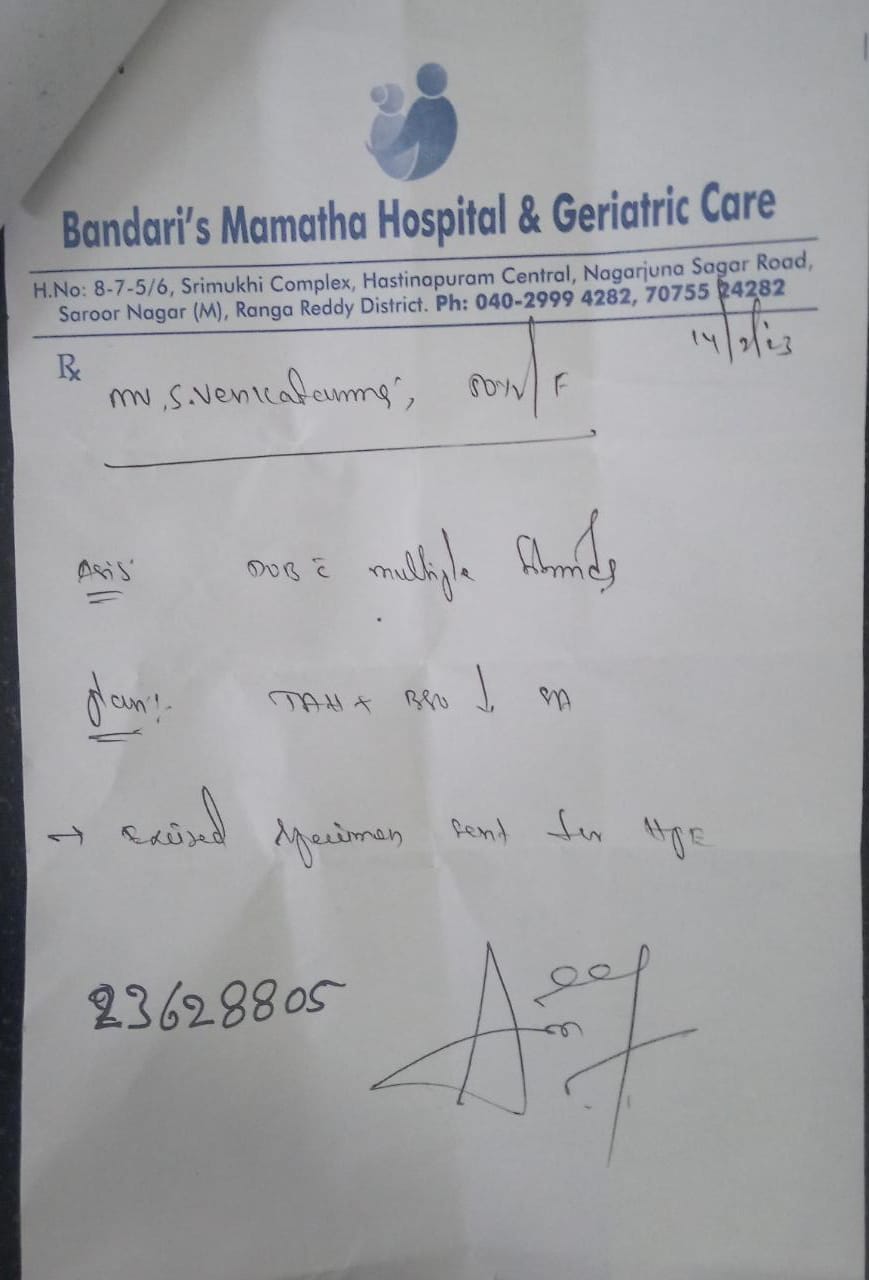 Bandari's Mamatha Hospital & Geriatric Care
H.No: 8-7-5/6, Srimukhi Complex, Hastinapuram Central, Nagarjuna Sagar Road,
Saroor Nagar (M), Ranga Reddy District. Ph: 040-2999 4282, 70755 24282
14/2/23
Rx
S. Venkatamma, F
DUB c̄ multiple fibroids
plan:- TAH + BSO ↓ SA
→ Excised specimen sent for HPE
23628805